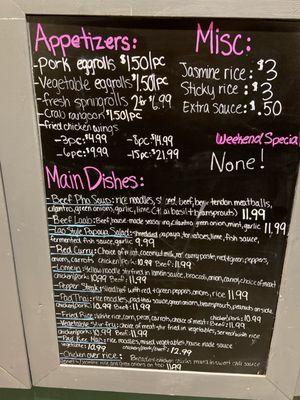 Appetizers:
- Pork eggrolls $1.50/pc
- Vegetable eggrolls $1.50/pc
- fresh springrolls 2 for $6.99
- Crab rangoon $1.50/pc
- fried chicken wings
- 3pc: $4.99 - 8pc: $14.99
- 6pc: $9.99 - 15pc: $21.99
Misc:
Jasmine rice: $3
Sticky rice: $3
Extra sauce: $.50
Weekend Special
None!
Main Dishes:
- Beef Pho Soup: rice noodles, beef, beef tendon meatballs,
cilantro, green onions, garlic, lime 11.99
- Beef Laab: Beef, house-made seasoning, cilantro, green onions, mint, garlic 11.99
- Lao Style Papaya Salad: shredded papaya, tomatoes, lime, fish sauce,
fermented fish sauce, garlic 9.99
- Red Curry: Choice of meat, coconut milk, red curry paste, red peppers,
onions, carrots chicken/pork: 10.99 Beef: 11.99
- Lomein: yellow noodle stir fried in lomein sauce, broccoli, onion, carrot, choice of meat
chicken/pork: 10.99 Beef: 11.99
- Pepper Steak: with red & green peppers, onions, rice 11.99
- Pad Thai: rice noodles, pad thai sauce, green onions, peanuts on side
chicken/pork: 10.99 Beef: 11.99
- Fried Rice: white rice, corn, peas, carrots, choice of meat: chicken/pork: 10.99
Beef: 11.99
- Vegetable Stir fry: choice of meat stir fried in vegetables, served with rice
chicken/pork: 10.99 Beef: 11.99
- Pad Kee Mao: rice noodles, mixed vegetables, house made sauce
vegetable: 10.99 chicken/pork/beef: 12.99
- Chicken over rice: Breaded chicken mixed in sweet chili sauce
Jasmine rice and green onions on top 11.99